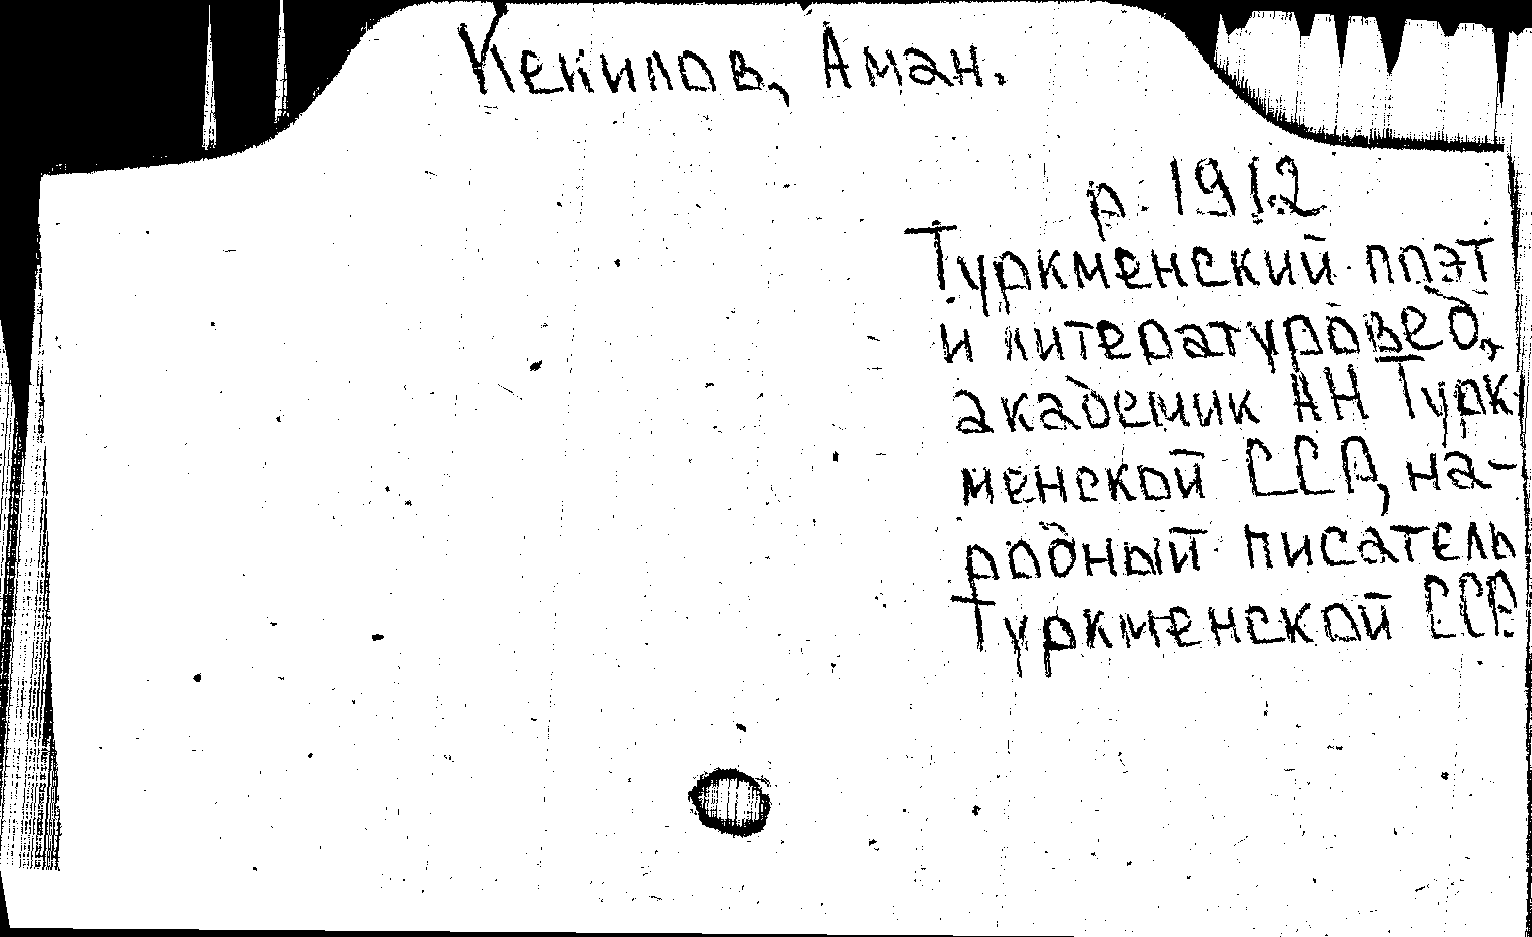 Кекилов, Аман.
р. 1912
Туркменский поэт
и литературовед,
академик АН Турк-
менской ССР, на-
родный писатель
Туркменской ССР.